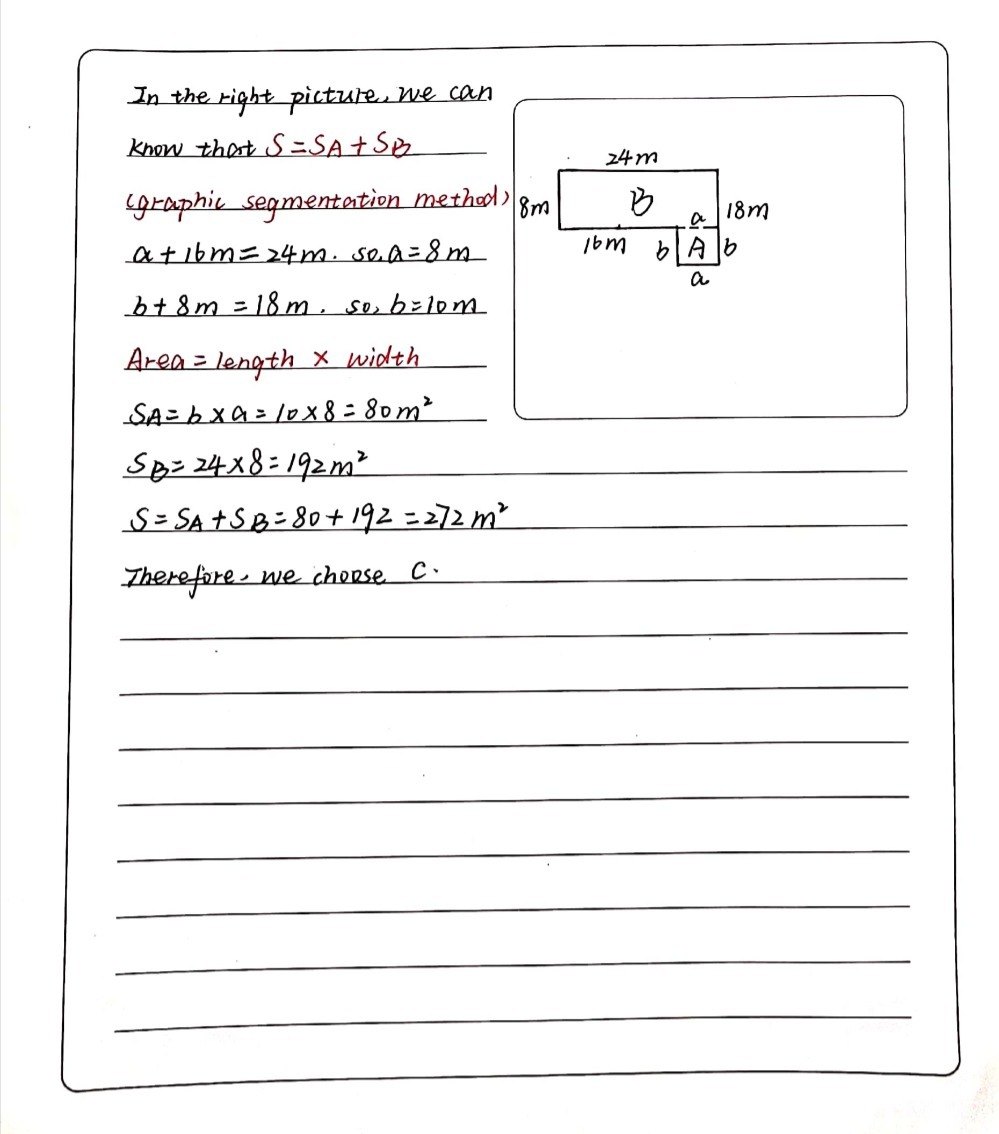 In the right picture, we can
know that S=SA+SB
(graphic segmentation method)
a+16m=24m. so, a=8m
b+8m=18m. so, b=10m
Area=length × width
SA=b×a=10×8=80m²
SB=24×8=192m²
S=SA+SB=80+192=272m²
Therefore, we choose C.
24m
8m
B
a
18m
16m
b
A
b
a